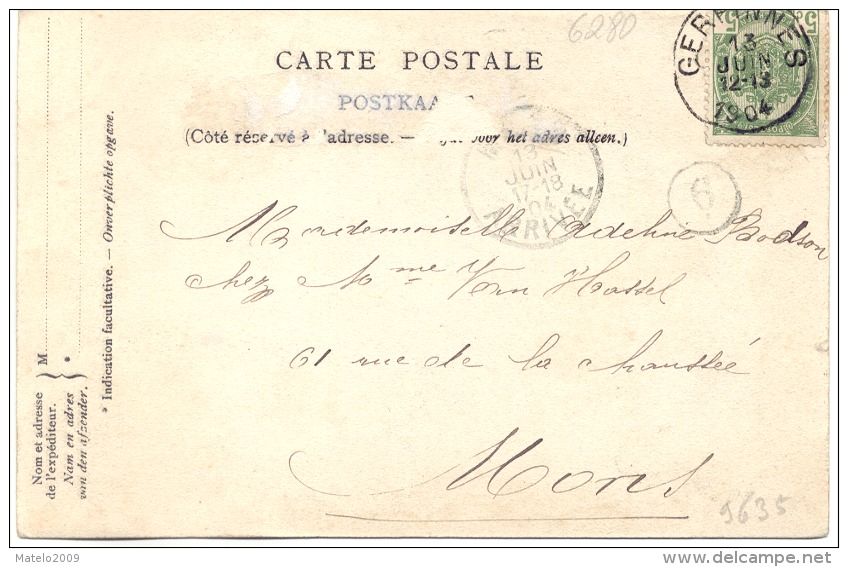 6280
GERPINNES
13
JUIN
12-13
1904
5c 5
CARTE POSTALE
POSTKAA
(Côté réservé à l'adresse. — voor het adres alleen.)
13
JUIN
17-18
04
ARRIVÉE
6
Mademoiselle Adeline Bodson
chez Mme Van Hassel
61 rue de la chaussée
Mons
9635
M
*
Nom et adresse
de l'expéditeur.
Naam en adres
van den afzender.
* Indication facultative. — Onverplichte opgave.
Matelo2009
www.delcampe.net